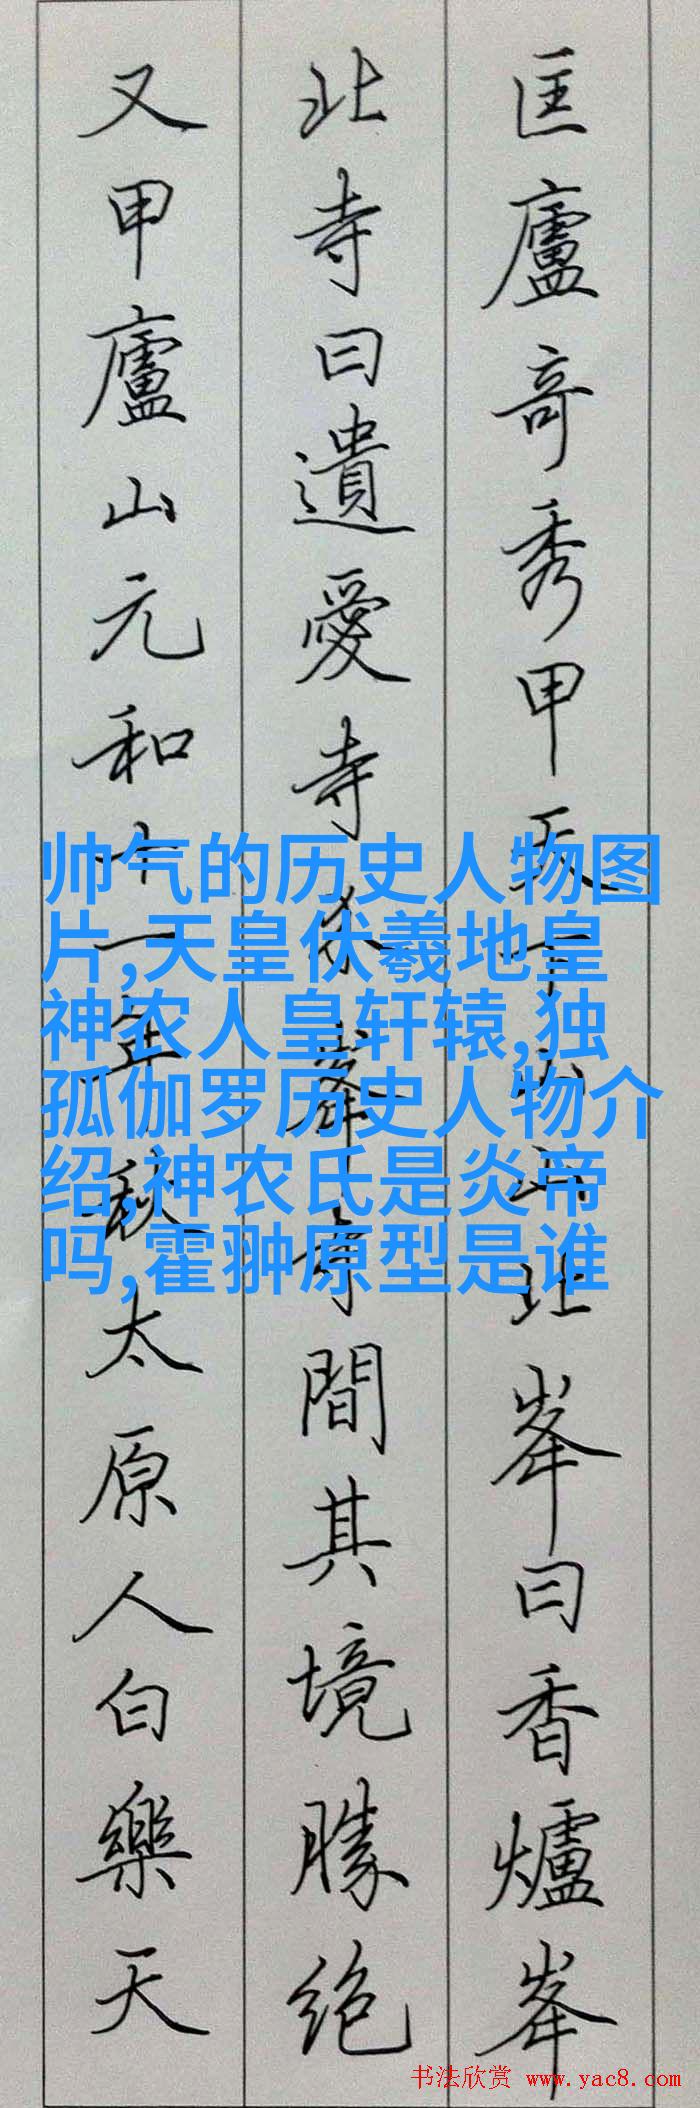 匡廬竒秀甲天下山山北峯曰香爐峯
北寺曰遺愛寺介峯寺間其境勝絶
又甲廬山元和十一年秋太原人白樂天
帅气的历史人物图
片,天皇伏羲地皇
神农人皇轩辕,独
孤伽罗历史人物介
绍,神农氏是炎帝
吗,霍翀原型是谁
书法欣赏 www.yac8.com